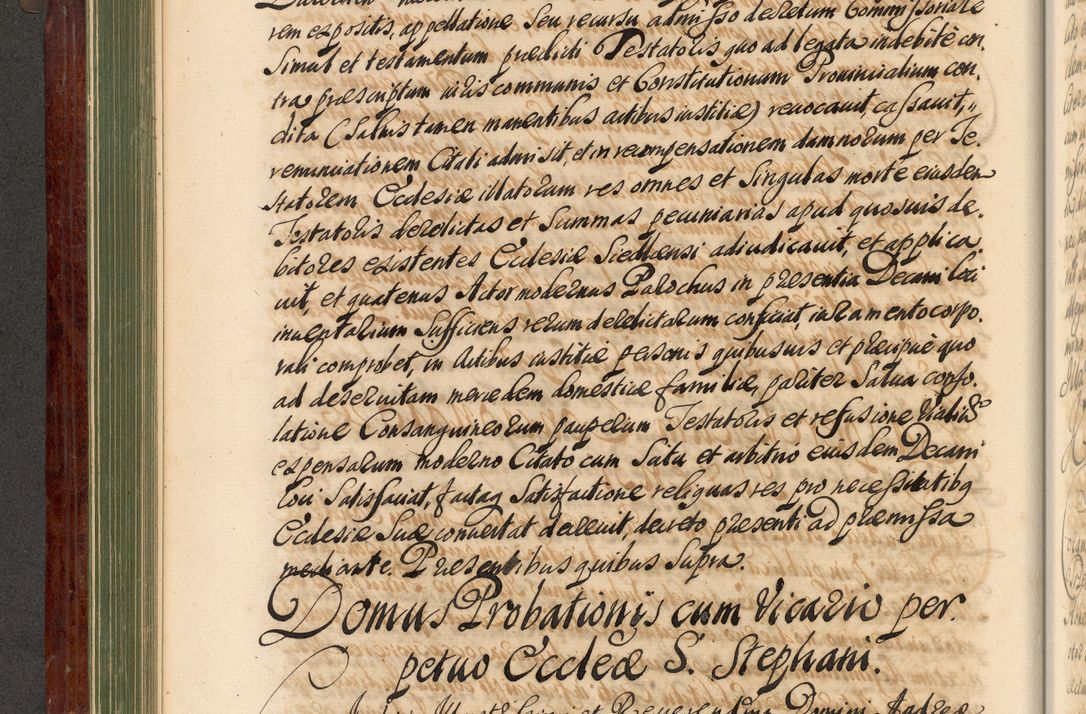 rem expositis, appellatione Seu recursu admisso decretum Commissoriale
Simul et testamentum prædicti Testatoris quo ad legata indebitè con,
tra præscriptum iuris communis et Constitutionum Provincialium con,
dita (Salvis tamen manentibus actibus iustitiæ) revocavit, cassavit,,
renunciationem Citati admisit, et in recompensationem damnorum per Te,
statorem Ecclesiæ illatorum res omnes et Singulas morte eiusdem
Testatoris derelictas et Summas pecuniarias apud quosvis de,
bitores existentes Ecclesiæ Siedlensi adiudicavit, et applica,
vit, et quatenus Actor modernus Parochus in præsentia Decani loci
inventarium Sufficiens rerum derelictarum conficiat, iuramento corpo,
rali comprobet, in Actibus iustitiæ personis quibusvis et præcipuè quo
ad deservitam mercedem domesticæ familiæ, pariter Salva conso,
latione Consanguineorum pauperum Testatoris et refusione
expensarum moderno Citato cum Satu et arbitrio eiusdem Decani
loci Satisfaciat, factaq Satisfactione reliquas res pro necessitatibq
Ecclesiæ Suæ convertat decrevit, decreto præsenti ad præmissa
mediante. Præsentibus quibus Supra.
Domus Probationis cum Vicario per,
petuo Eccleæ S. Stephani.
et Reverendum Domini Andrea